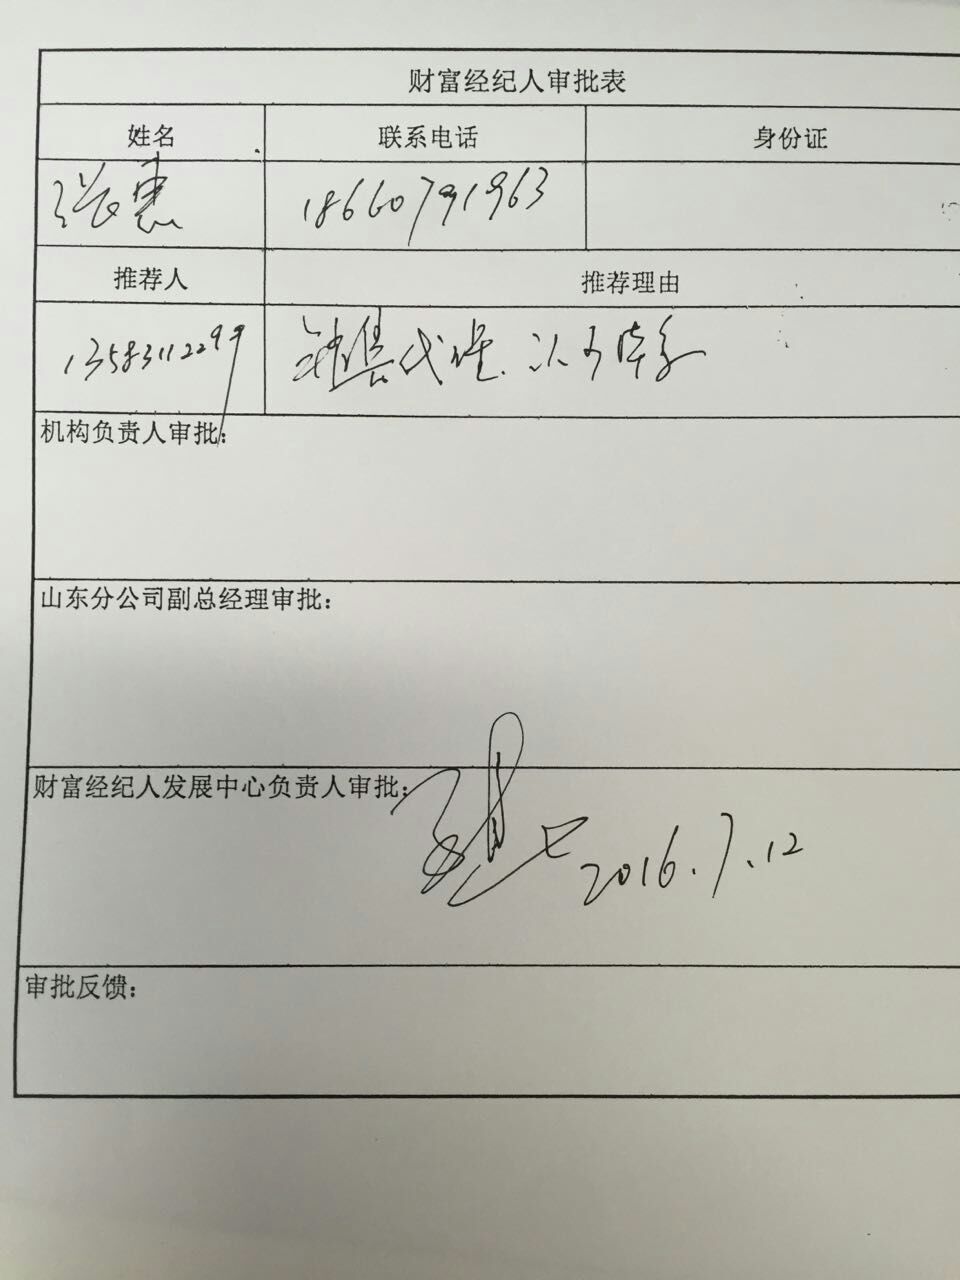 财富经纪人审批表
姓名 联系电话 身份证
张惠 18660791963
推荐人 推荐理由
13583112299 销售代理.认可陆家
机构负责人审批：
山东分公司副总经理审批：
财富经纪人发展中心负责人审批：
2016.7.12
审批反馈：